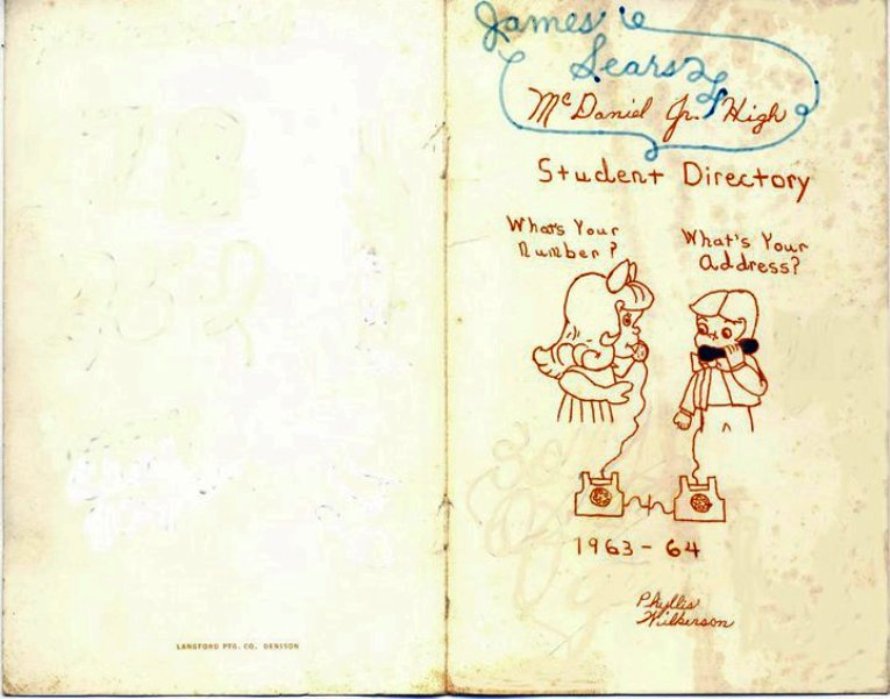 James
Sears
McDaniel Jr. High
Student Directory
What's Your
Number?
What's Your
address?
1963-64
Phyllis
Wilkerson
LANGFORD PTG. CO. DENISON